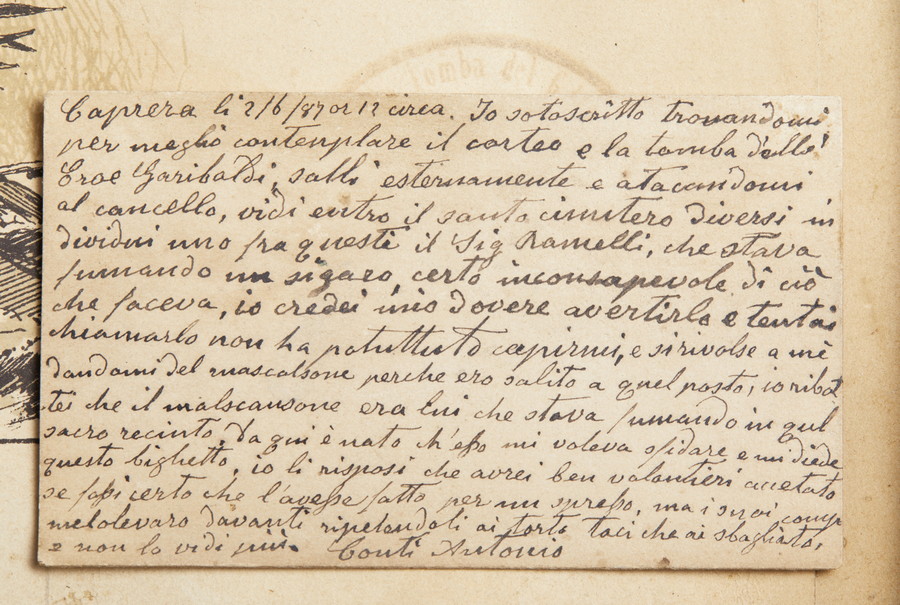 Tomba del
Caprera li 2/6/87 or 12 circa. Io sotoscritto trovandomi
per meglio contemplare il corteo e la tomba dello'
Eroe Garibaldi, salli esternamente e atacandomi
al cancello, vidi entro il santo cimitero diversi in
dividui uno fra questi il Sig Ramelli, che stava
fumando un sigaro, certo inconsapevole di ciò
che faceva, io credei mio dovere avertirlo e tentai
chiamarlo non ha potuttuto capirmi, e si rivolse a me
dandomi del mascalsone perche ero salito a quel posto, io ribat
tei che il malscansone era lui che stava fumando in quel
sacro recinto, da qui è nato ch'esso mi voleva sfidare e mi diede
questo biglietto, io li risposi che avrei ben volontieri accetato
se fossi certo che l'avesse fatto per un spresso, ma i suoi comp
melolevaro davanti ripetendoli ai torto taci che ai sbagliato,
e non lo vidi più. Conti Antonio